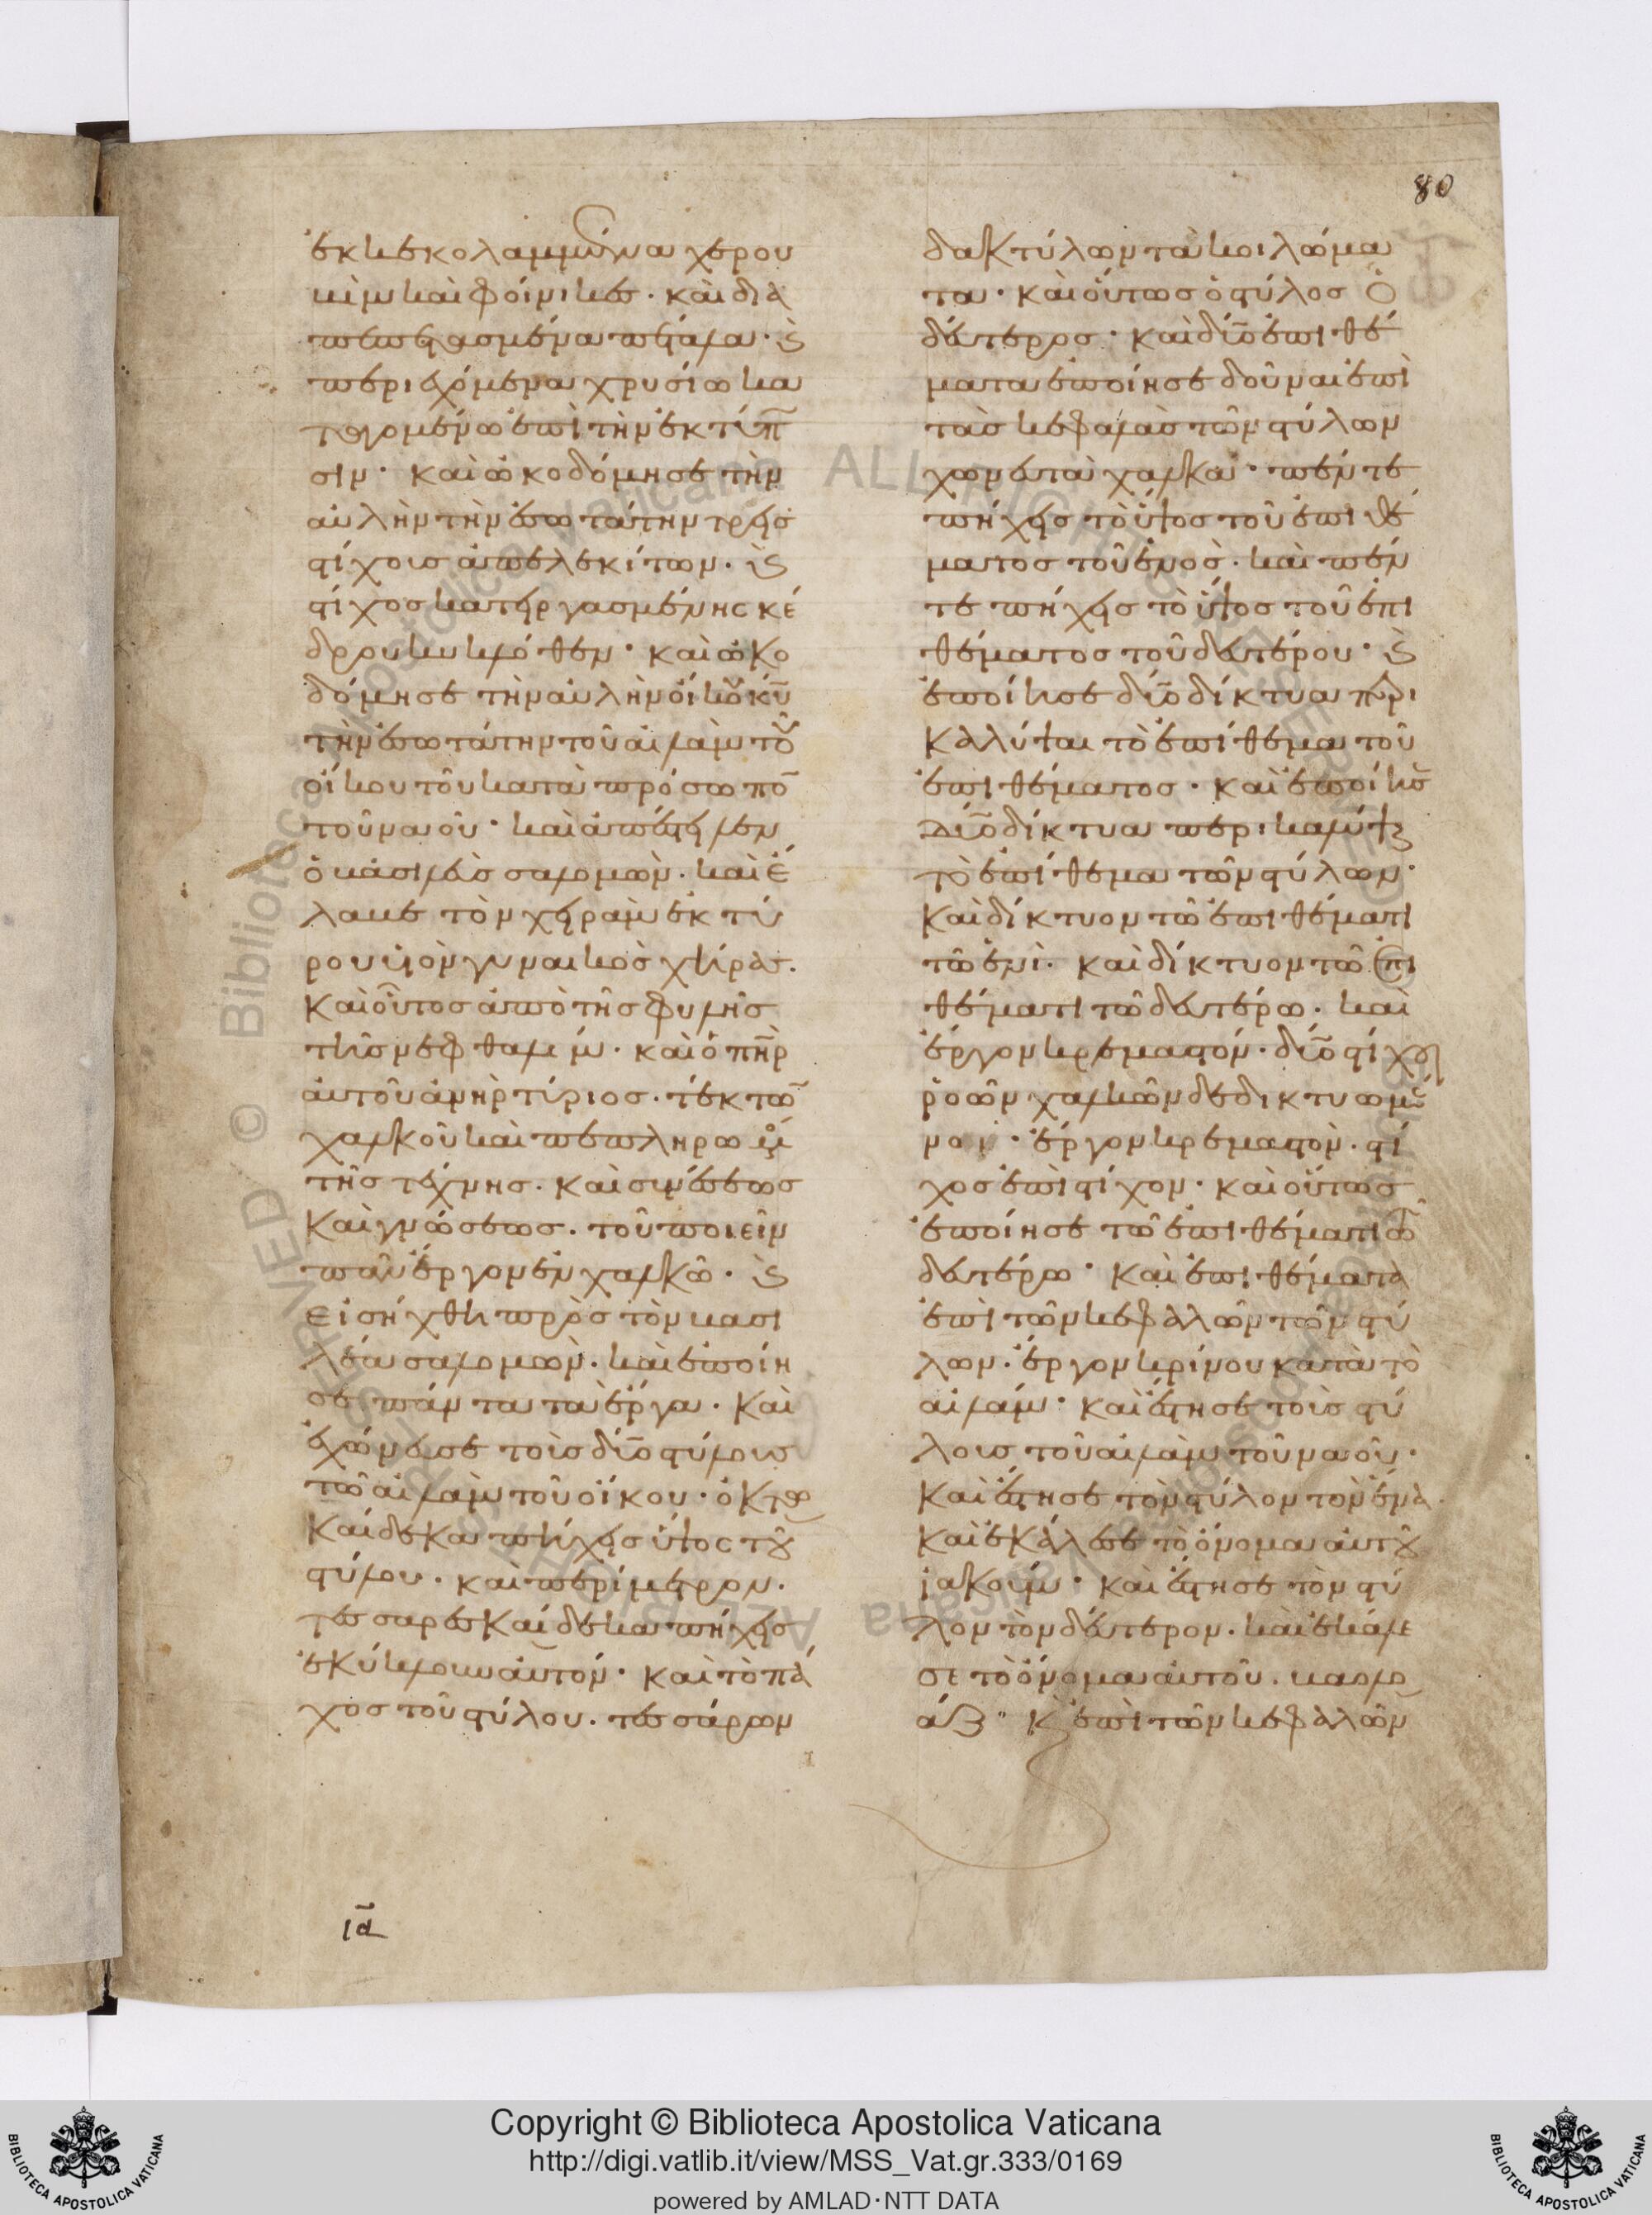 80
ἐκκεκολαμμένα χερου
βὶμ καὶ φοίνικες· καὶ δια
πεπετασμένα πέταλα· ϗ
περιεχόμενα χρυσίω κα
ταγομένω ἐπὶ τὴν ἐκτύπ
σιν· καὶ ὠκοδόμησε τὴν
αὐλὴν τὴν ἐσωτάτην τρεῖς
στίχους ἀπελεκίτων· ϗ
στίχος κατειργασμένης κέ
δρου κυκλόθεν· καὶ ὠκο
δόμησε τὴν αὐλὴν οἴκου κῡ
τὴν ἐσωτάτην τοῦ αἰλὰμ τοῦ
οἴκου τοῦ κατὰ πρόσωπο
τοῦ ναοῦ· καὶ ἀπέστειλεν
ὁ βασιλεὺς σαλομὼν· καὶ ἔ
λαβε τὸν χειρὰμ ἐκ τύ
ρου υἱὸν γυναικὸς χήρας·
καὶ οὗτος ἀπὸ τῆς φυλῆς
τῆς νεφθαλίμ· καὶ ὁ πηρ
αὐτοῦ ἀνὴρ τύριος· τέκτω
χαλκοῦ καὶ πεπληρωμέ
τῆς τέχνης· καὶ συνέσεως
καὶ γνώσεως· τοῦ ποιεῖν
πᾶν ἔργον ἐν χαλκῶ· ϗ
εἰσήχθη πρὸς τὸν βασι
λέα σαλομὼν· καὶ ἐποίη
σε πάντα τὰ ἔργα· καὶ
ἐχώνευσε τοὺς δύο στύλους
τῶ αἰλὰμ τοῦ οἴκου· ὀκτω
καίδεκα πήχεις ὕψος τοῦ
στύλου· καὶ περίμετρον·
τεσσαρεσκαίδεκα πήχεις
ἐκύκλου αὐτόν· καὶ τὸ πά
χος τοῦ στύλου· τεσσάρων
δακτύλων τὰ κοιλώμα
τα· καὶ οὕτως ὁ στύλος ὁ
δεύτερος· καὶ δύο ἐπιθέ
ματα ἐποίησε δοῦναι ἐπὶ
τὰς κεφαλὰς τῶν στύλων
χωνευτὰ χαλκᾶ· πέντε
πήχεις τὸ ὕψος τοῦ ἐπιθέ
ματος τοῦ ἑνὸς· καὶ πέν
τε πήχεις τὸ ὕψος τοῦ ἐπι
θέματος τοῦ δευτέρου· ϗ
ἐποίησε δύο δίκτυα περι
καλύψαι τὸ ἐπίθεμα τοῦ
ἐπιθέματος· καὶ ἐποίησε
δύο δίκτυα περικαλύψαι
τὸ ἐπίθεμα τῶν στύλων·
καὶ δίκτυον τῶ ἐπιθέματι
τῶ ἑνὶ· καὶ δίκτυον τῶ ἐπι
θέματι τῶ δευτέρω· καὶ
ἔργον κρεμαστόν· δύο στίχοι
ῥοῶν χαλκῶν δεδικτυωμέ
νοι· ἔργον κρεμαστὸν· στί
χος ἐπὶ στίχον· καὶ οὕτως
ἐποίησε τῶ ἐπιθέματι τῶ
δευτέρω· καὶ ἐπιθέματα
ἐπὶ τῶν κεφαλῶν τῶν στύ
λων· ἔργον κρίνου κατὰ τὸ
αἰλάμ· καὶ ἔστησε τοὺς στύ
λους τοῦ αἰλὰμ τοῦ ναοῦ·
καὶ ἔστησε τὸν στύλον τὸν ἕνα·
καὶ ἐκάλεσε τὸ ὄνομα αὐτοῦ
ἰακούμ· καὶ ἔστησε τὸν στύ
λον τὸν δεύτερον· καὶ ἐκάλε
σε τὸ ὄνομα αὐτοῦ· βαολο
άζ·· κ ἐπὶ τῶν κεφαλῶν
ια
Copyright © Biblioteca Apostolica Vaticana
http://digi.vatlib.it/view/MSS_Vat.gr.333/0169
powered by AMLAD·NTT DATA
BIBLIOTECA APOSTOLICA VATICANA
BIBLIOTECA APOSTOLICA VATICANA